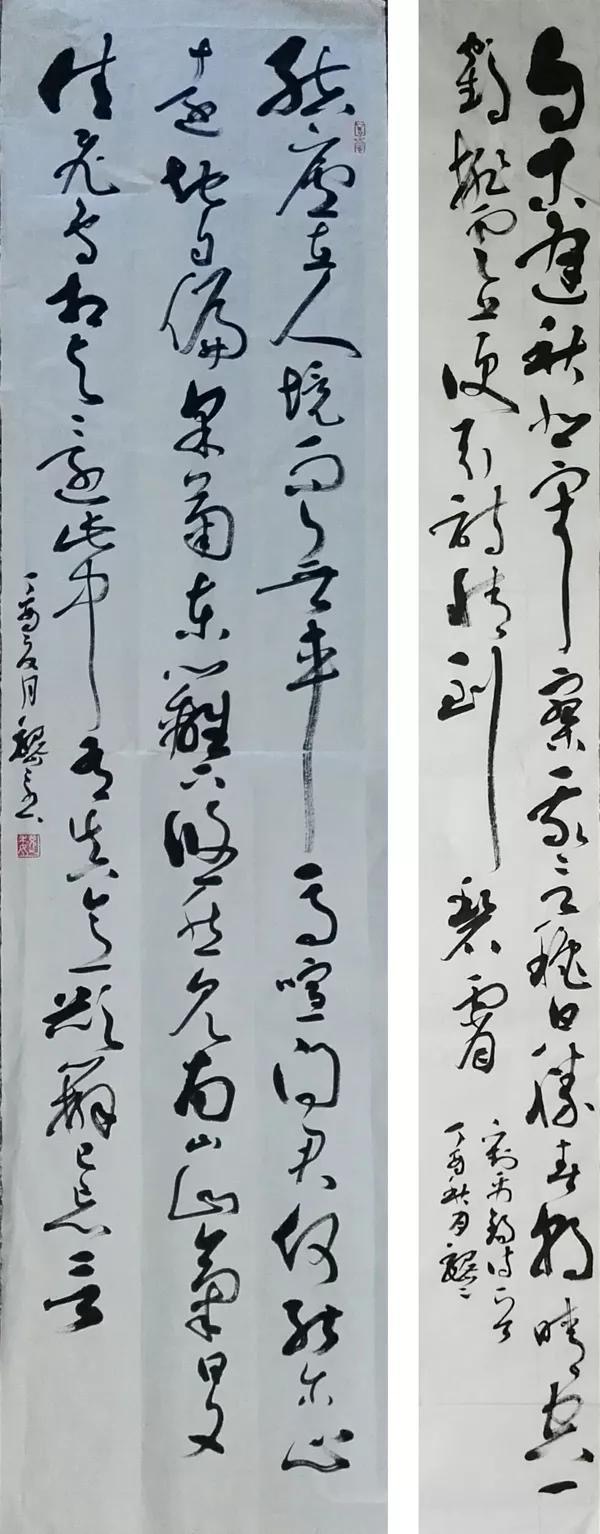 自古逢秋悲寂寥我言秋日勝春朝晴空一
鶴排雲上便引詩情到碧霄
劉禹錫詩一首
丁酉秋月
結廬在人境而無車馬喧問君何能爾心
遠地自偏采菊東籬下悠然見南山山氣日夕
佳飛鳥相與還此中有真意欲辨已忘言
丁酉 月